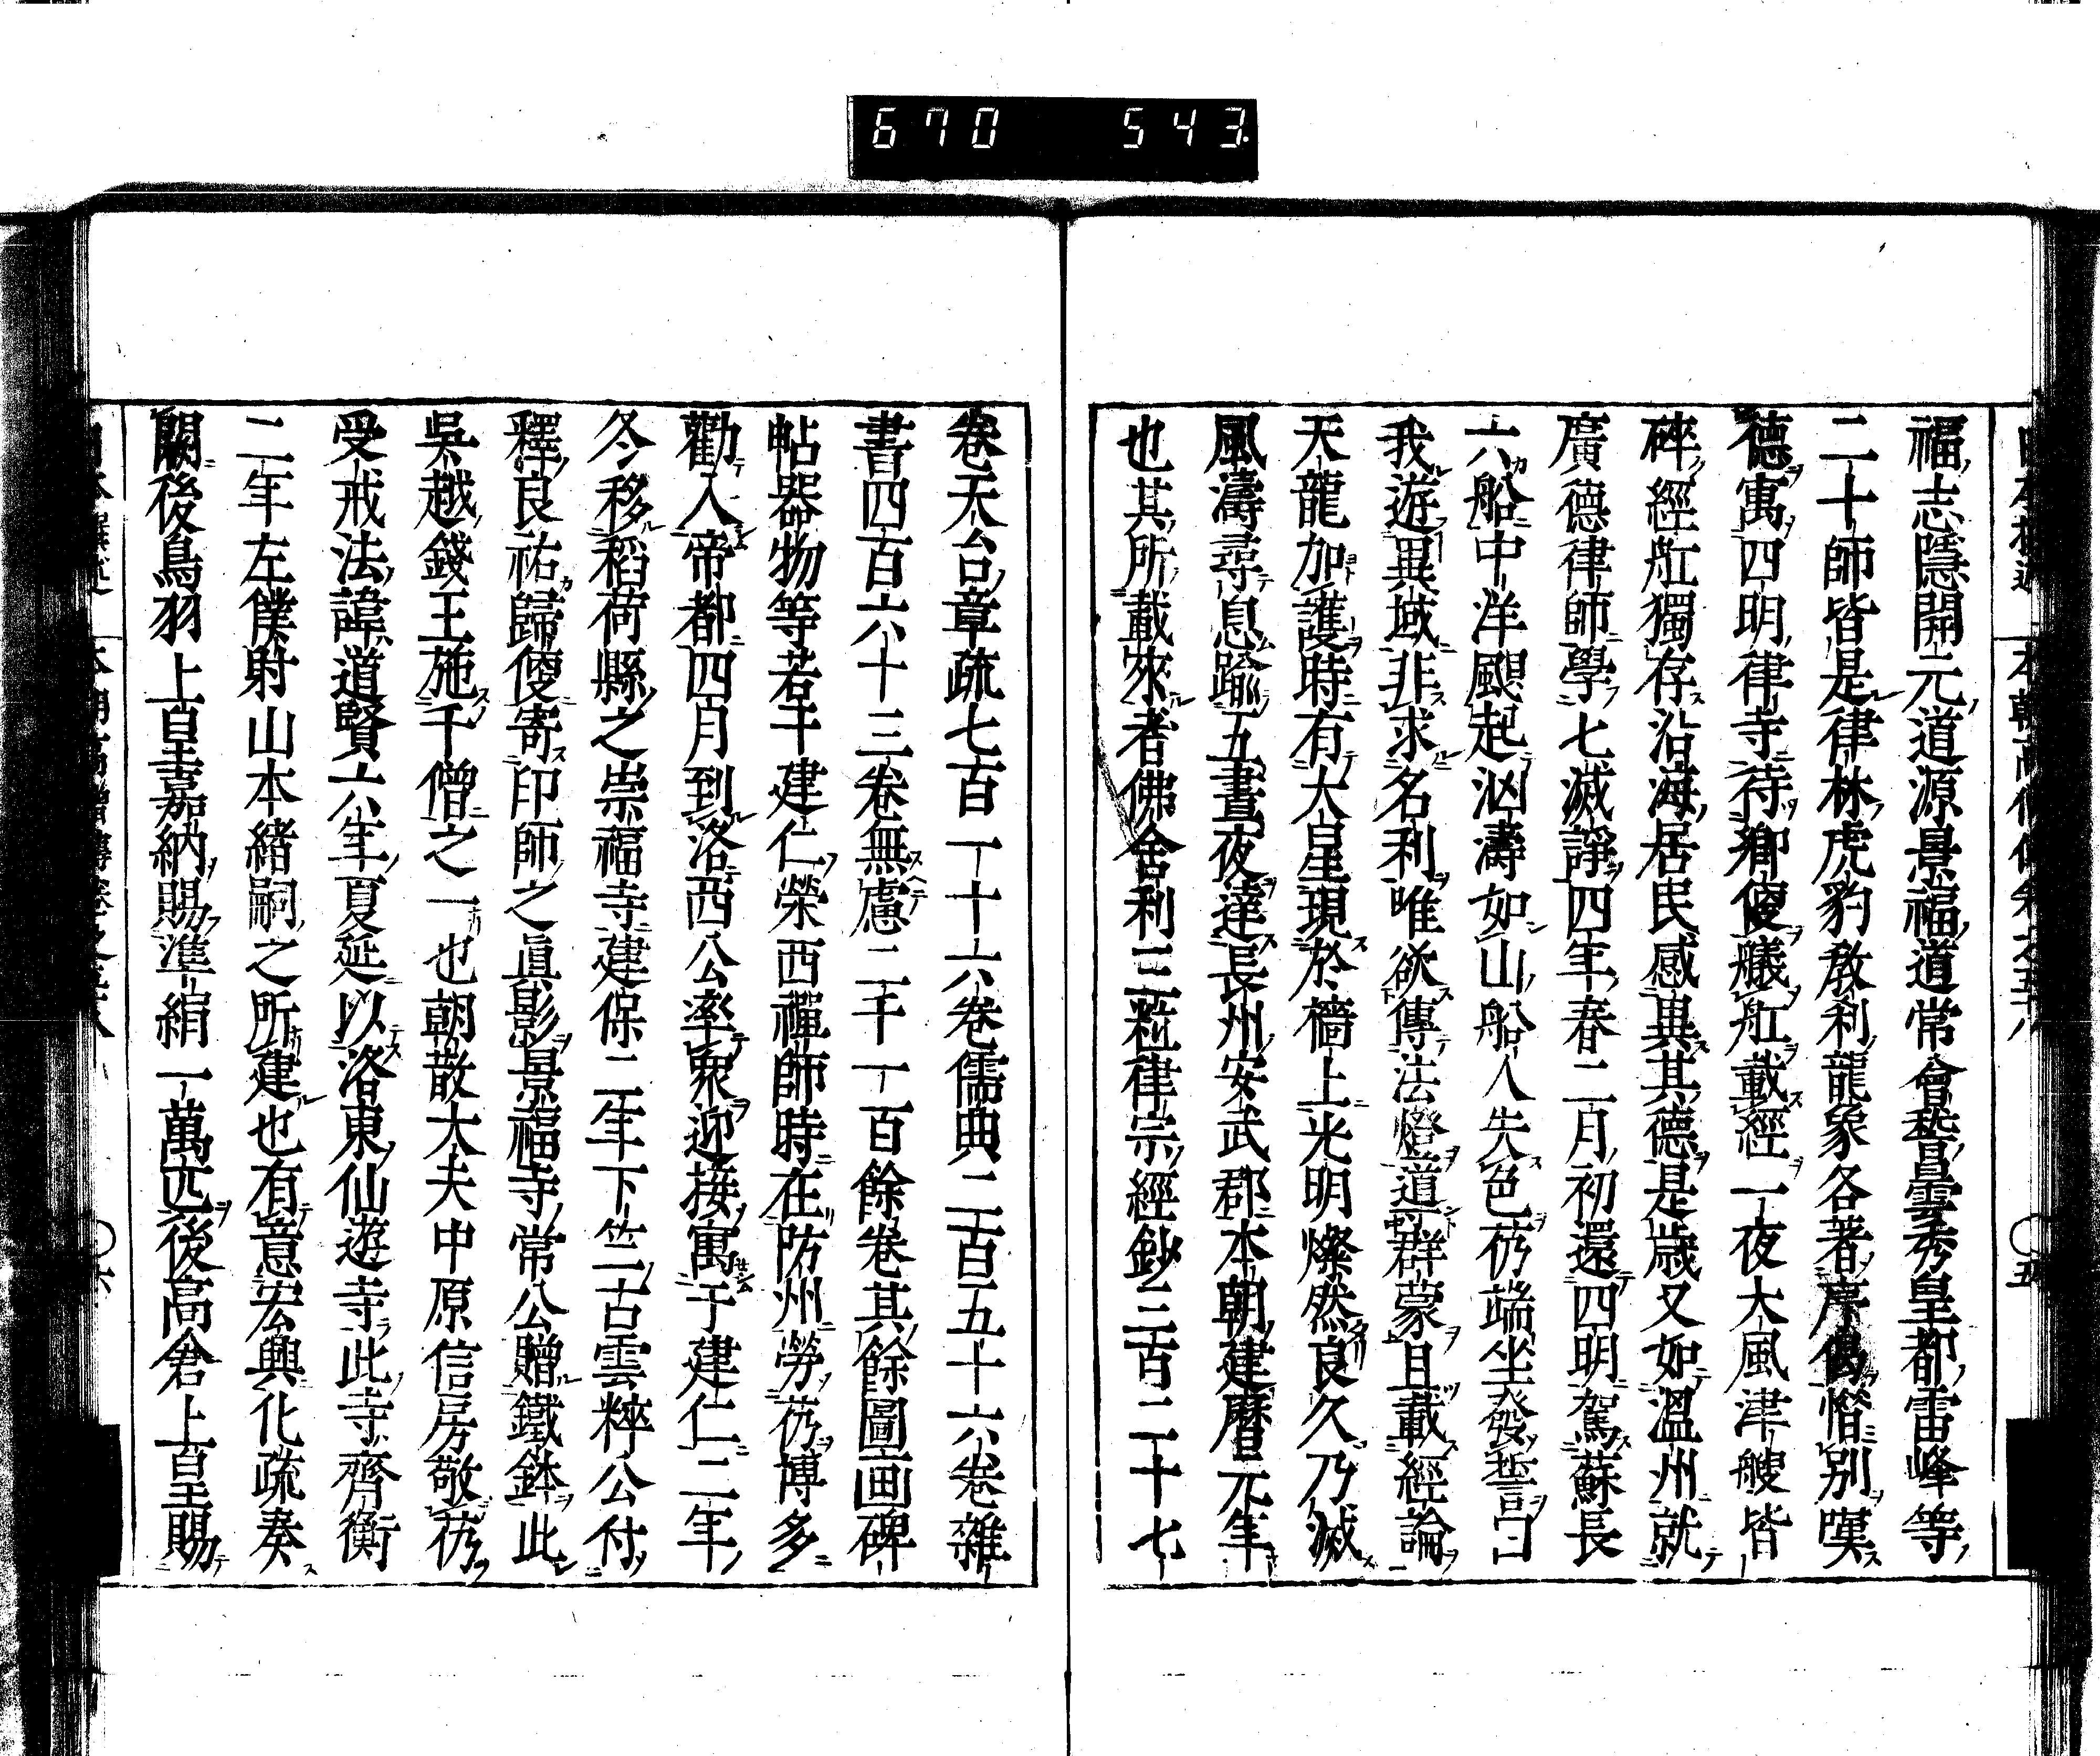 670 543
福志隱開元道源景福道常會稽曇秀皇都雷峰等
二十師皆是律林虎豹教利龍象各著序偈惜別嘆
德寓四明律寺待鄉便艤舡載經一夜大風津艘皆
碎經舡獨存沿海居民感異其德是歲又如溫州就
廣德律師學七滅諍四年春二月初還四明駕蘇長
六船中洋颶起汹濤如山船人失色芿端坐發誓曰
我遊異域非求名利唯欲傳法燈道群蒙且載經論
天龍加護時有大星現於檣上光明燦然良久乃滅
風濤尋息踰五晝夜達長州安武郡本朝建曆元年
也其所載來者佛舍利三粒律宗經鈔三百二十七
卷天台章疏七百一十六卷儒典二百五十六卷雜
書四百六十三卷無慮二千一百餘卷其餘圖画碑
帖器物等若干建仁榮西禪師時在防州勞芿博多
勸入帝都四月到洛西公率衆迎接寓于建仁二年
冬移稻荷縣之崇福寺建保二年下竺古雲粹公付
釋良祐歸便寄印師之眞影景福寺常公贈鐵鉢此
吳越錢王施千僧之一也朝散大夫中原信房敬芿
受戒法諱道賢六年夏延以洛東仙遊寺此寺齊衡
二年左僕射山本緒嗣之所建也有意宏興化疏奏
闕後鳥羽上皇嘉納賜準絹一萬匹後高倉上皇賜